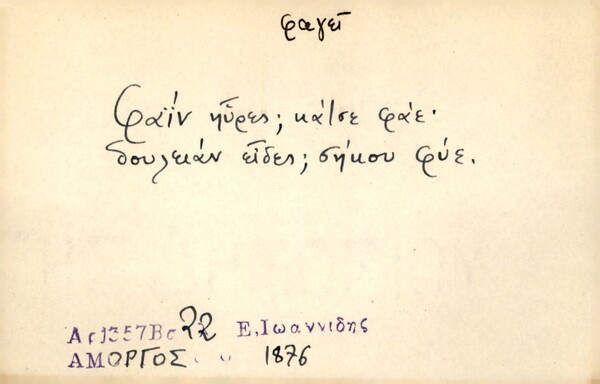 φαγεῖ
Φαΐν ηὗρες; κάτσε φάε·
δουλειάν εἶδες; σήκου φύε.
22 Ε. Ιωαννιδης
ΑΜΟΡΓΟΣ 1876